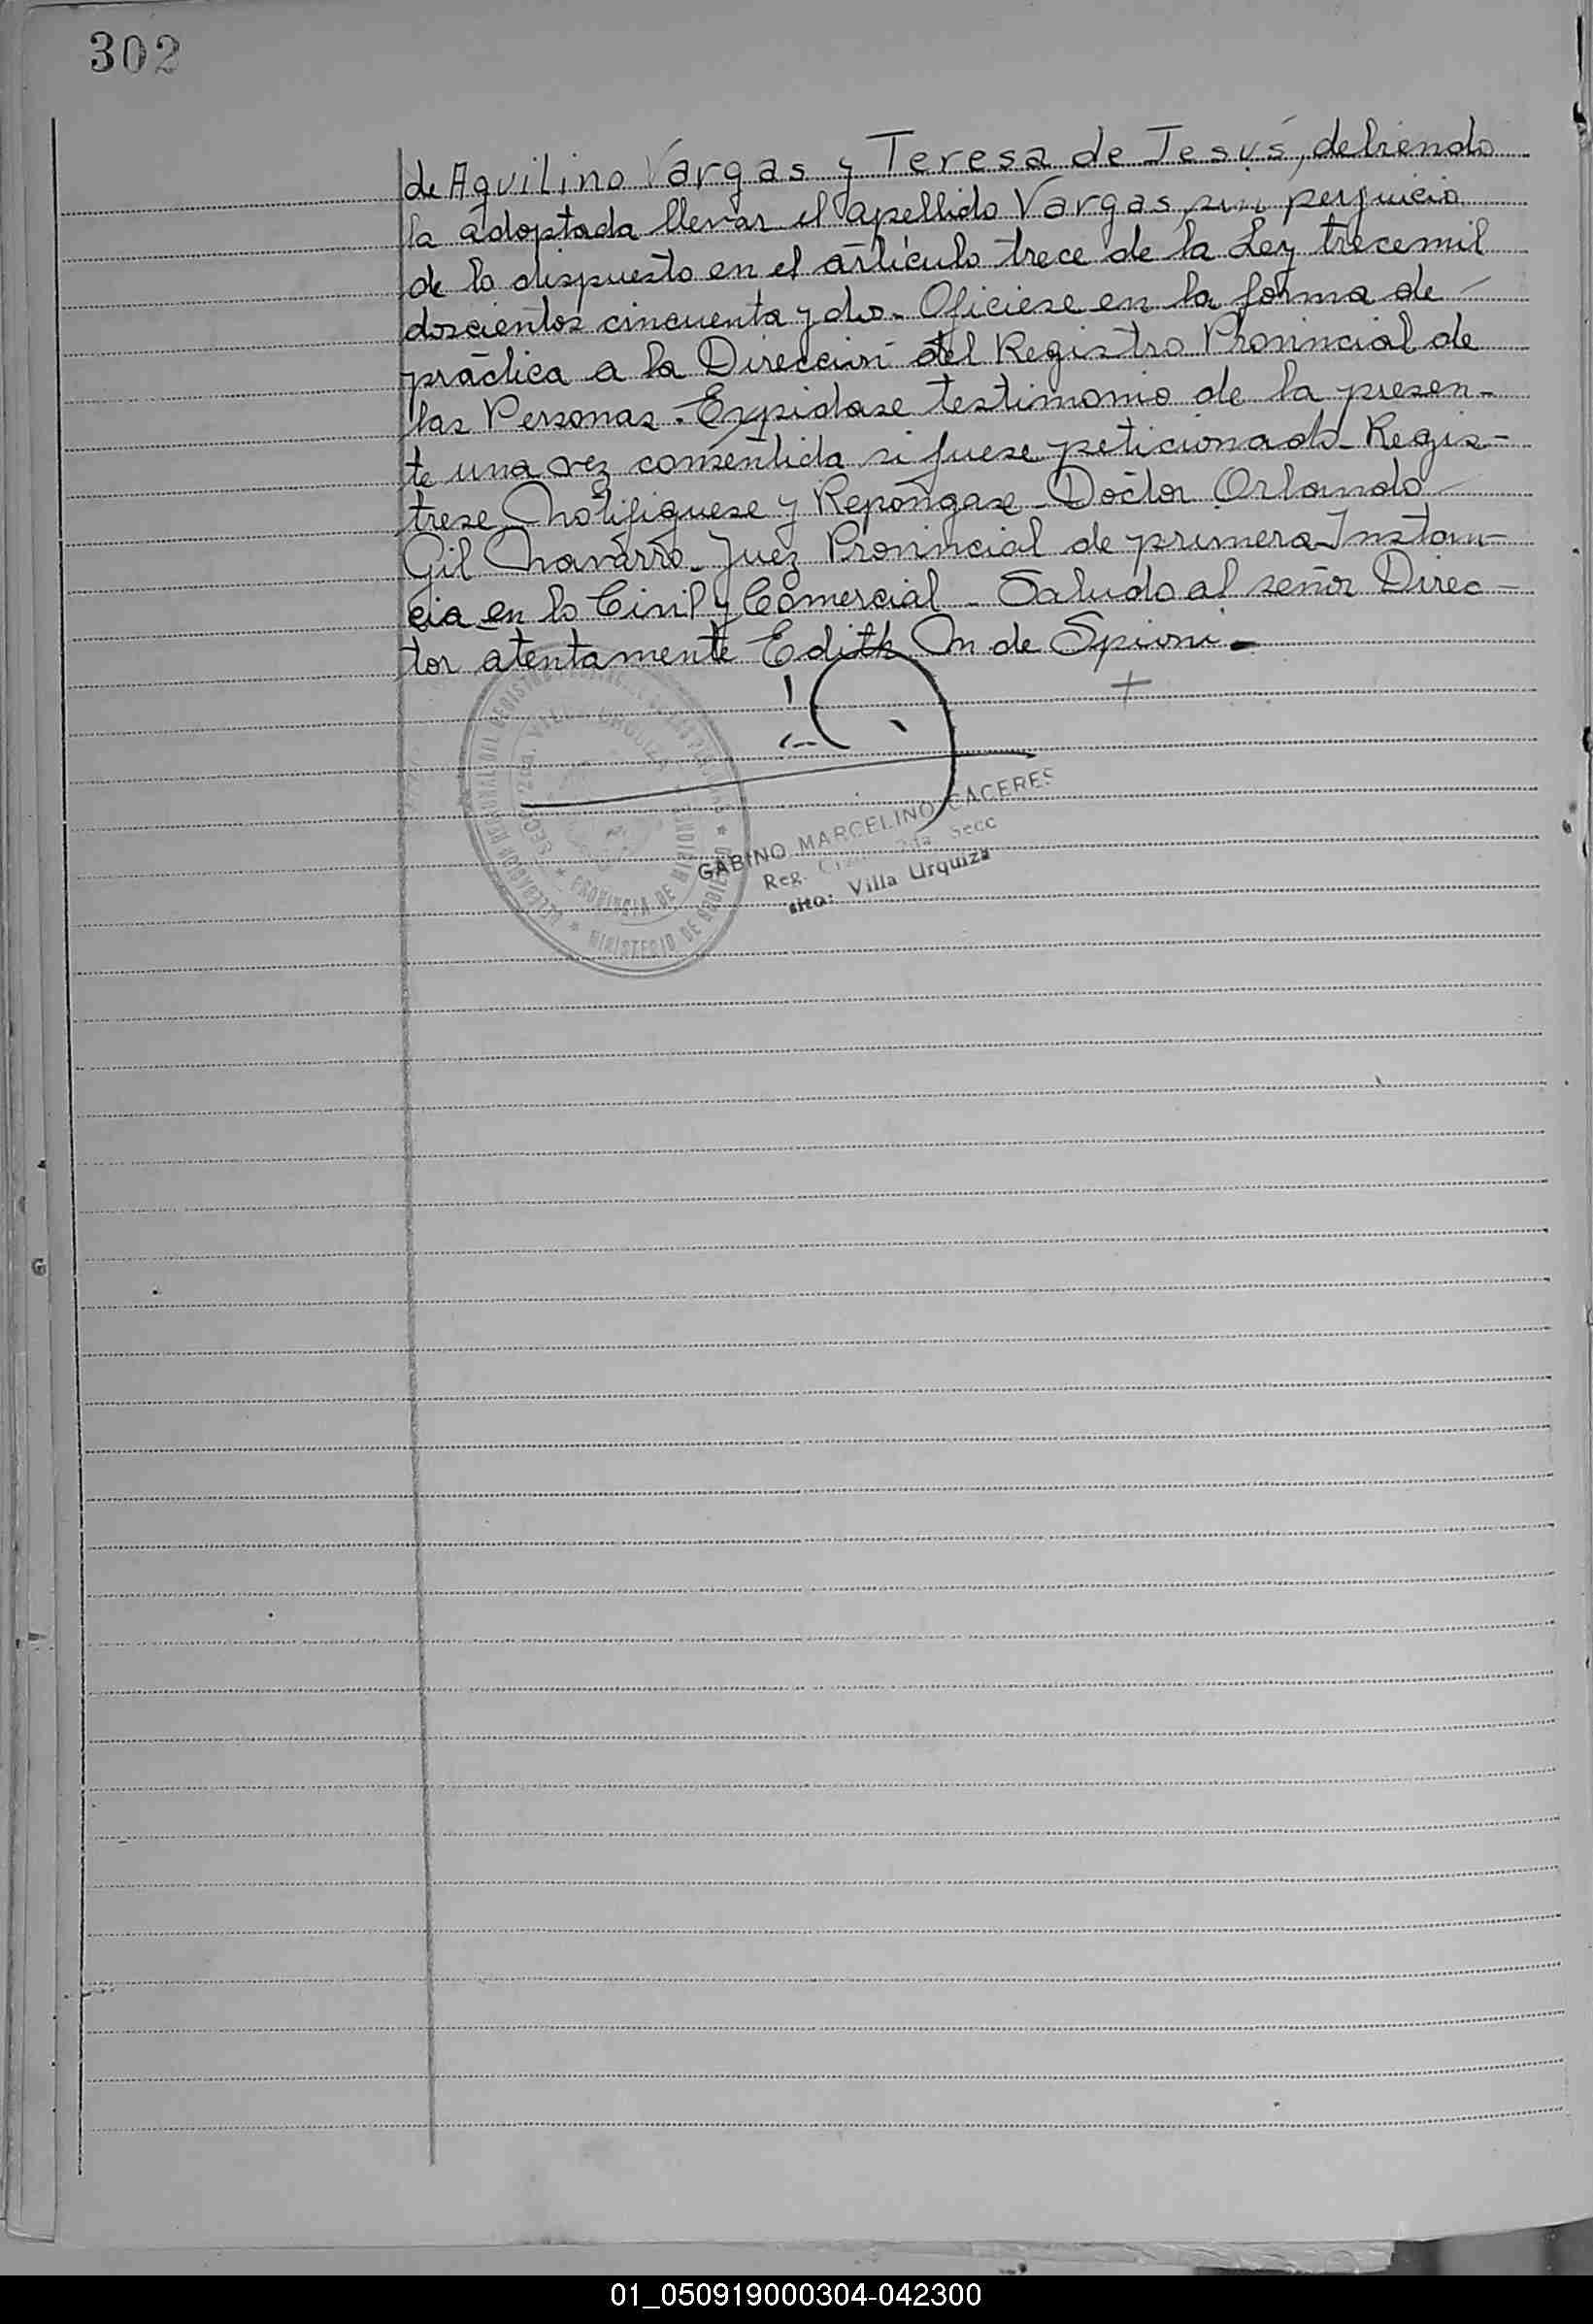 302
de Aquilino Vargas y Teresa de Jesús, debiendo
la adoptada llevar el apellido Vargas, sin perjuicio
de lo dispuesto en el artículo trece de la Ley trecemil
doscientos cincuenta y dos. Ofíciese en la forma de
práctica a la Dirección del Registro Provincial de
las Personas. Expídase testimonio de la presen-
te una vez consentida si fuese peticionado. Regis-
trese, Notifiquese y Repóngase. Doctor Orlando
Gil Navarro. Juez Provincial de primera Instan-
cia en lo Civil y Comercial. Saludo al señor Direc-
tor atentamente Edith M de Spioni.
GABINO MARCELINO CACERES
Reg. 2da Secc
sito: Villa Urquiza
PROVINCIA DE MISIONES
MINISTERIO DE
G
01_050919000304-042300